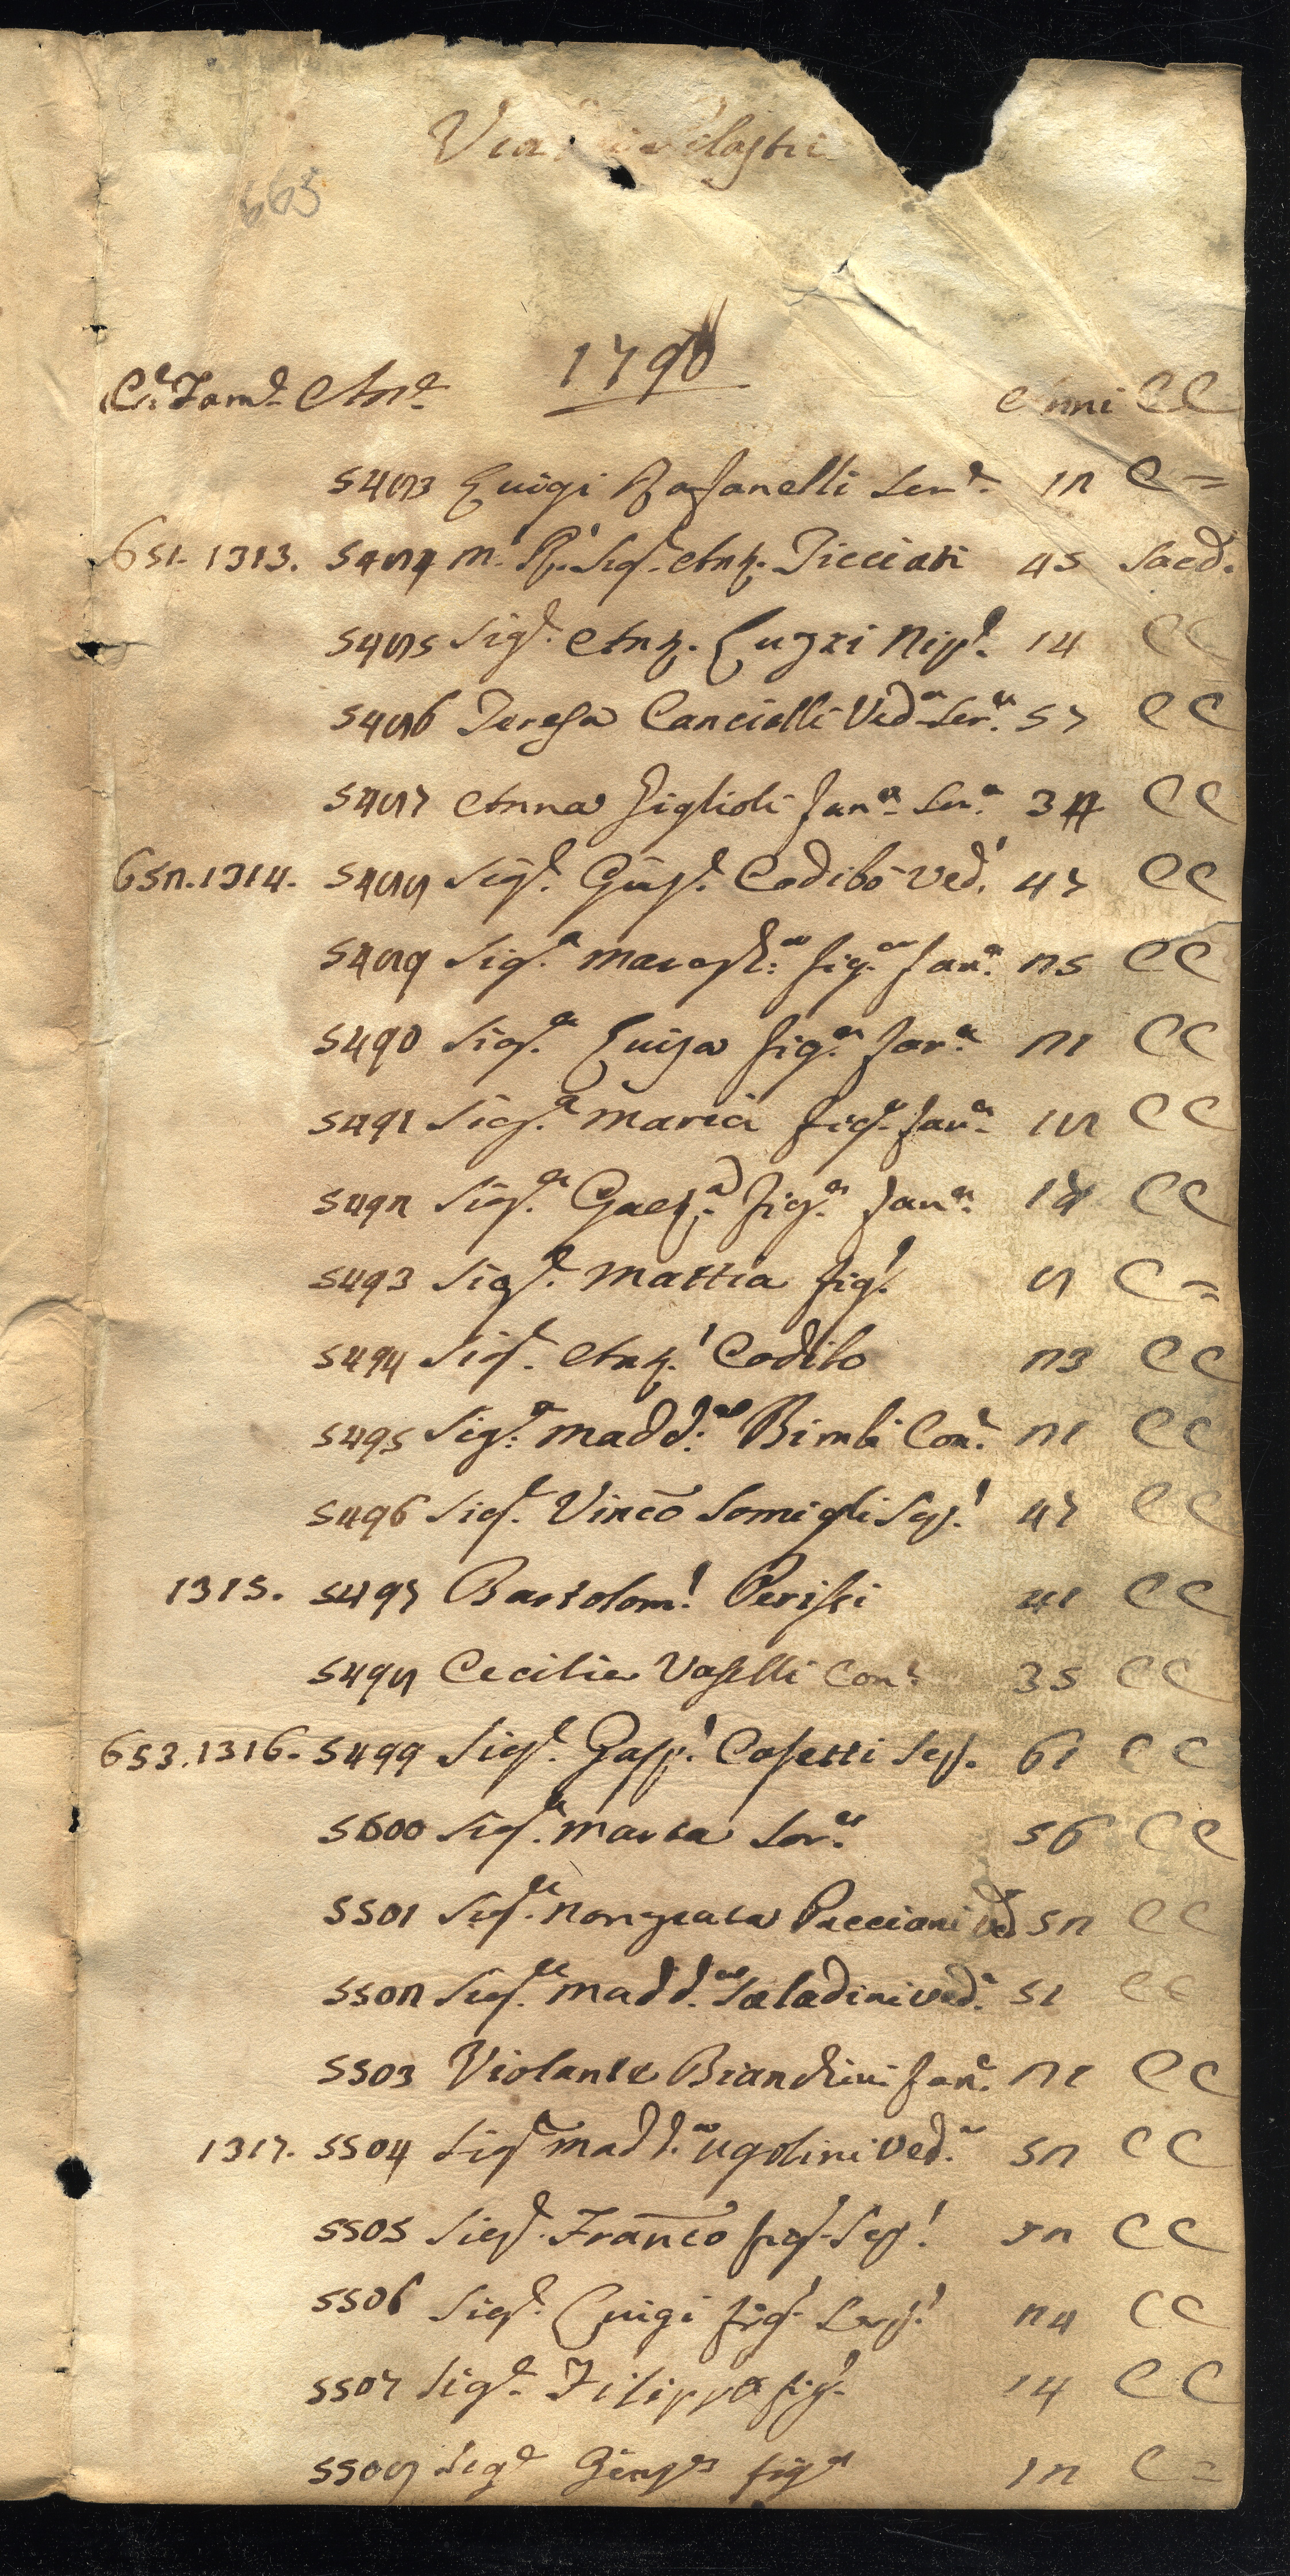 Via Pilastri
663
1790
C.e Fam.e An.e Anni CC
5483 Luigi Rafanelli Ser.e 12 C =
651. 1313. 5484 M. R. Sig.e Ant. Picciati 45 Sacd.
5485 Sig.e Ant. Luzzi Nip.e 14 CC
5486 Teresa Cancielli Ved.a Ser.a 57 CC
5487 Anna Figlioli Fan.a Ser.a CC
652. 1314. 5488 Sig.e Giusp.e Codibò Ved. 47 CC
5489 Sig.a Margh.a fig.a fan.a 25 CC
5490 Sig.a Luisa fig.a fan.a 21 CC
5491 Sig.a Maria fig.a fan.a 18 CC
5492 Sig.a Gaet.a fig.a fan.a CC
5493 Sig.e Mattia fig. 8 C =
5494 Sig.e Ant. Codibo 23 CC
5495 Sig.a Madd.a Bimbi Con.e 21 CC
5496 Sig.e Vincō Somigli Sep. 47 CC
1315. 5497 Bartolom. Perissi 41 CC
5498 Cecilia Vaselli Con.e 35 CC
653. 1316. 5499 Sig.e Gasp. Casetti Sep. 61 CC
5500 Sig.a Marta Sor.a 56 CC
5501 Sig.a Nonziata Pacciani Ved 52 CC
5502 Sig.a Madd.a Saladini ved.a 51 CC
5503 Violante Bianchini fan.e 21 CC
1317. 5504 Sig.a Madd.a Ugolini Ved.a 52 CC
5505 Sig.e Francō fig. Sep. CC
5506 Sig.e Luigi fig. Sep. 24 CC
5507 Sig.e Filippo fig. 14 CC
5508 Sig.e fig. 12 C =